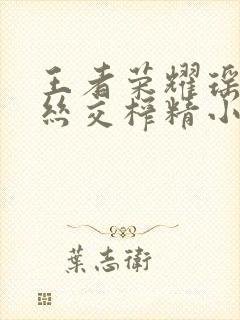 王者荣耀瑶
丝交榨精小
葉志衛